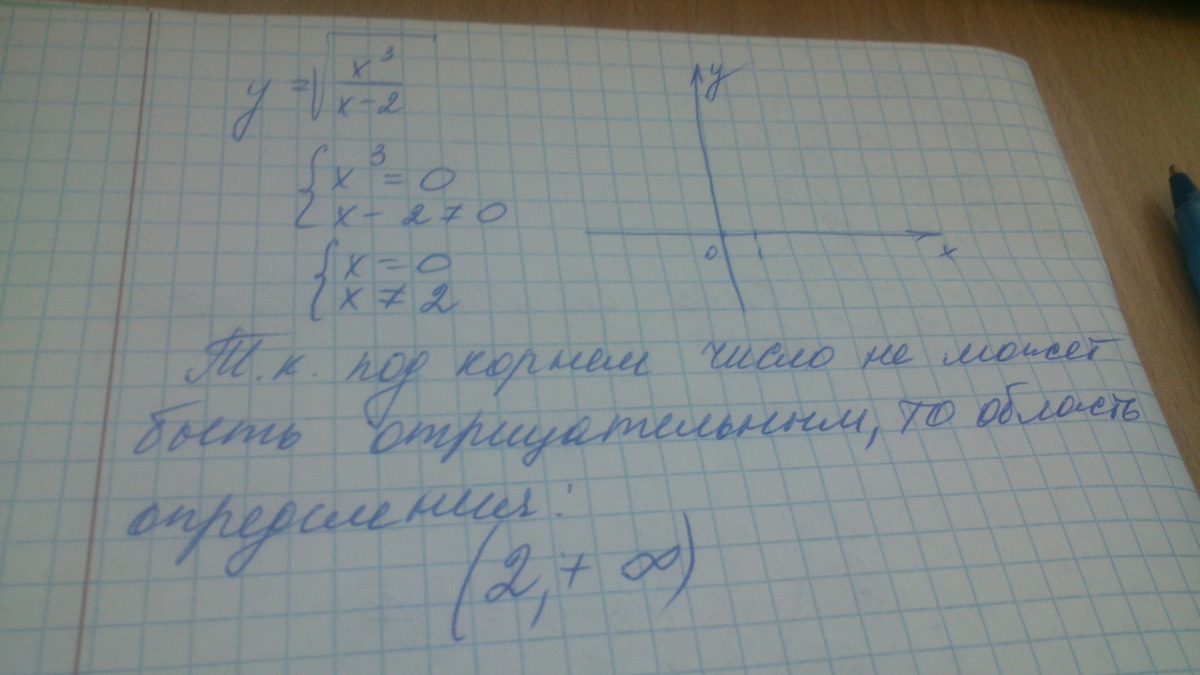 y = √(x³/(x-2))
{ x³ = 0
x - 2 ≠ 0
{ x = 0
x ≠ 2
y
0 1 x
Т.к. под корнем число не может
быть отрицательным, то область
определения:
(2, + ∞)